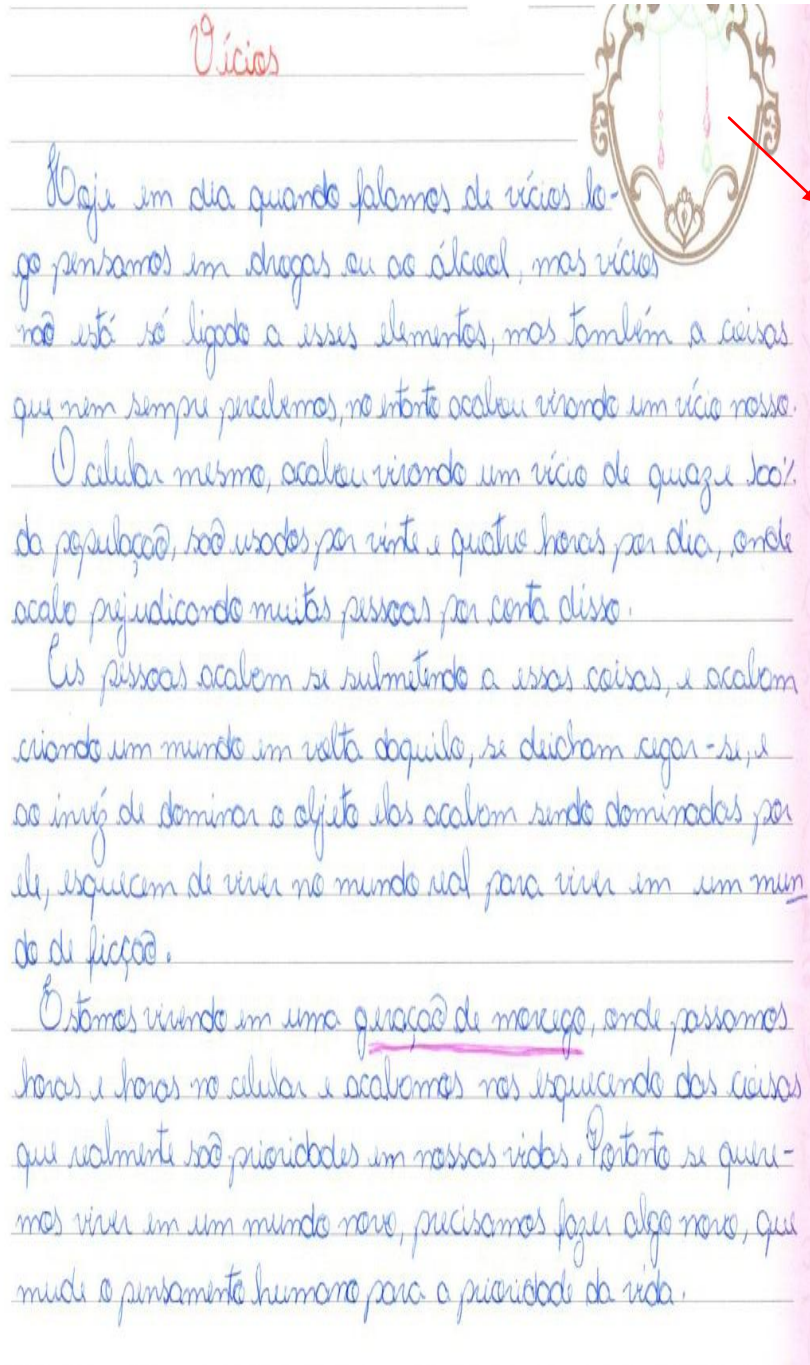 Vícios
Hoje em dia quando falamos de vícios lo-
go pensamos em drogas ou ao álcool, mas vícios
não está só ligado a esses elementos, mas também a coisas
que nem sempre percebemos, no entanto acabou virando um vício nosso.
O celular mesmo, acabou virando um vício de quaze 100%
da população, são usados por vinte e quatro horas por dia, onde
acabo prejudicando muitas pessoas por conta disso.
As pessoas acabam se submetendo a essas coisas, e acabam
criando um mundo em volta daquilo, se deicham cegar-se, e
ao invéz de dominar o objeto elas acabam sendo dominadas por
ele, esquecem de viver no mundo real para viver em um mun
do de ficção.
Estamos vivendo em uma geração de morcego, onde passamos
horas e horas no celular e acabamos nos esquecendo das coisas
que realmente são prioridades em nossas vidas. Portanto se quere-
mos viver em um mundo novo, precisamos fazer algo novo, que
mude o pensamento humano para a prioridade da vida.